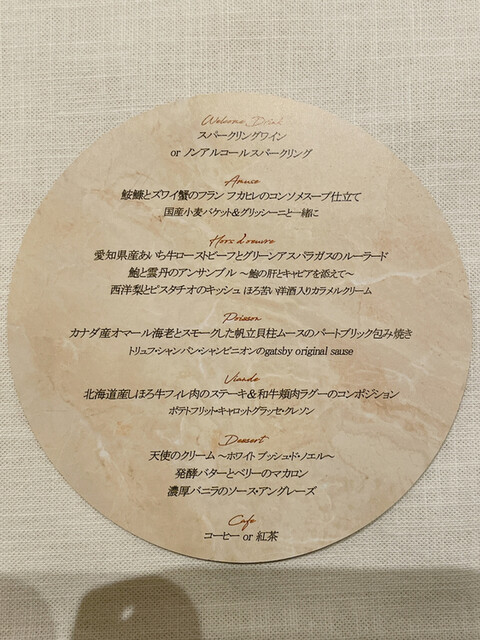 Welcome Drink
スパークリングワイン
or ノンアルコールスパークリング
Amuse
鮟鱇とズワイ蟹のフラン フカヒレのコンソメスープ仕立て
国産小麦バケット&グリッシーニと一緒に
Hors d'oeuvre
愛知県産あいち牛ローストビーフとグリーンアスパラガスのルーラード
鮑と雲丹のアンサンブル ～鮑の肝とキャビアを添えて～
西洋梨とピスタチオのキッシュ ほろ苦い洋酒入りカラメルクリーム
Poisson
カナダ産オマール海老とスモークした帆立貝柱ムースのパートブリック包み焼き
トリュフ・シャンパン・シャンピニオンのgatsby original sause
Viande
北海道産しほろ牛フィレ肉のステーキ&和牛頬肉ラグーのコンポジション
ポテトフリット・キャロットグラッセ・クレソン
Dessert
天使のクリーム ～ホワイト ブッシュ・ド・ノエル～
発酵バターとベリーのマカロン
濃厚バニラのソース・アングレーズ
Cafe
コーヒー or 紅茶